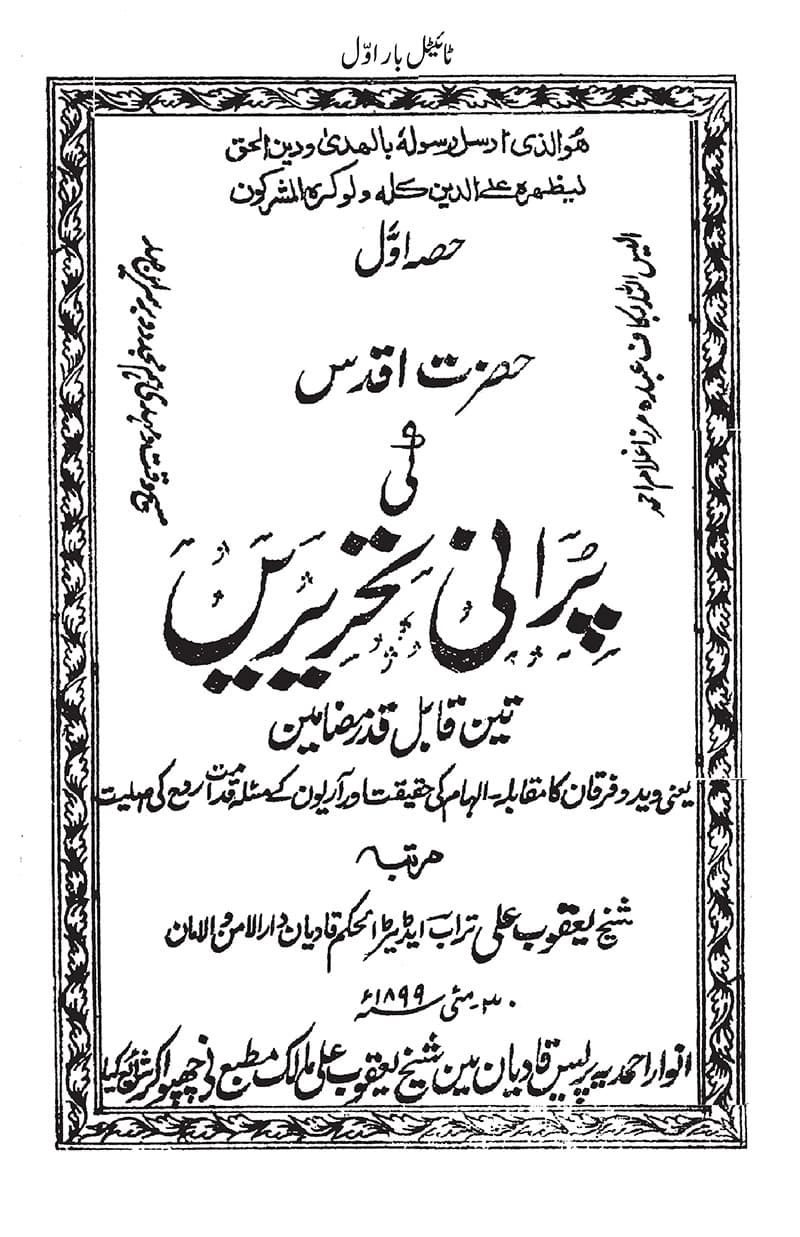 ٹائیٹل بار اوّل
ھو الذی ارسل رسولہ بالہدیٰ ودین الحق
لیظھرہ علی الدین کلہ ولو کرہ المشرکون
حصہ اوّل
الیس اللہ بکاف عبدہ مرزا غلام احمد
حضرت اقدس
کی
پُرانی تحریریں
تین قابل قدر مضامین
یعنی وید و فرقان کا مقابلہ ۔ الہام کی حقیقت اور آریوں کے مسئلہ قدامت روح کی
مرتبہ
شیخ یعقوب علی تراب ایڈیٹر الحکم قادیان دار الامن والامان
۳۰ ۔ مئی سنہ ۱۸۹۹ء
انوار احمدیہ پریس قادیان مین شیخ یعقوب علی مالک مطبع نے چھپوا کر شائع کیا